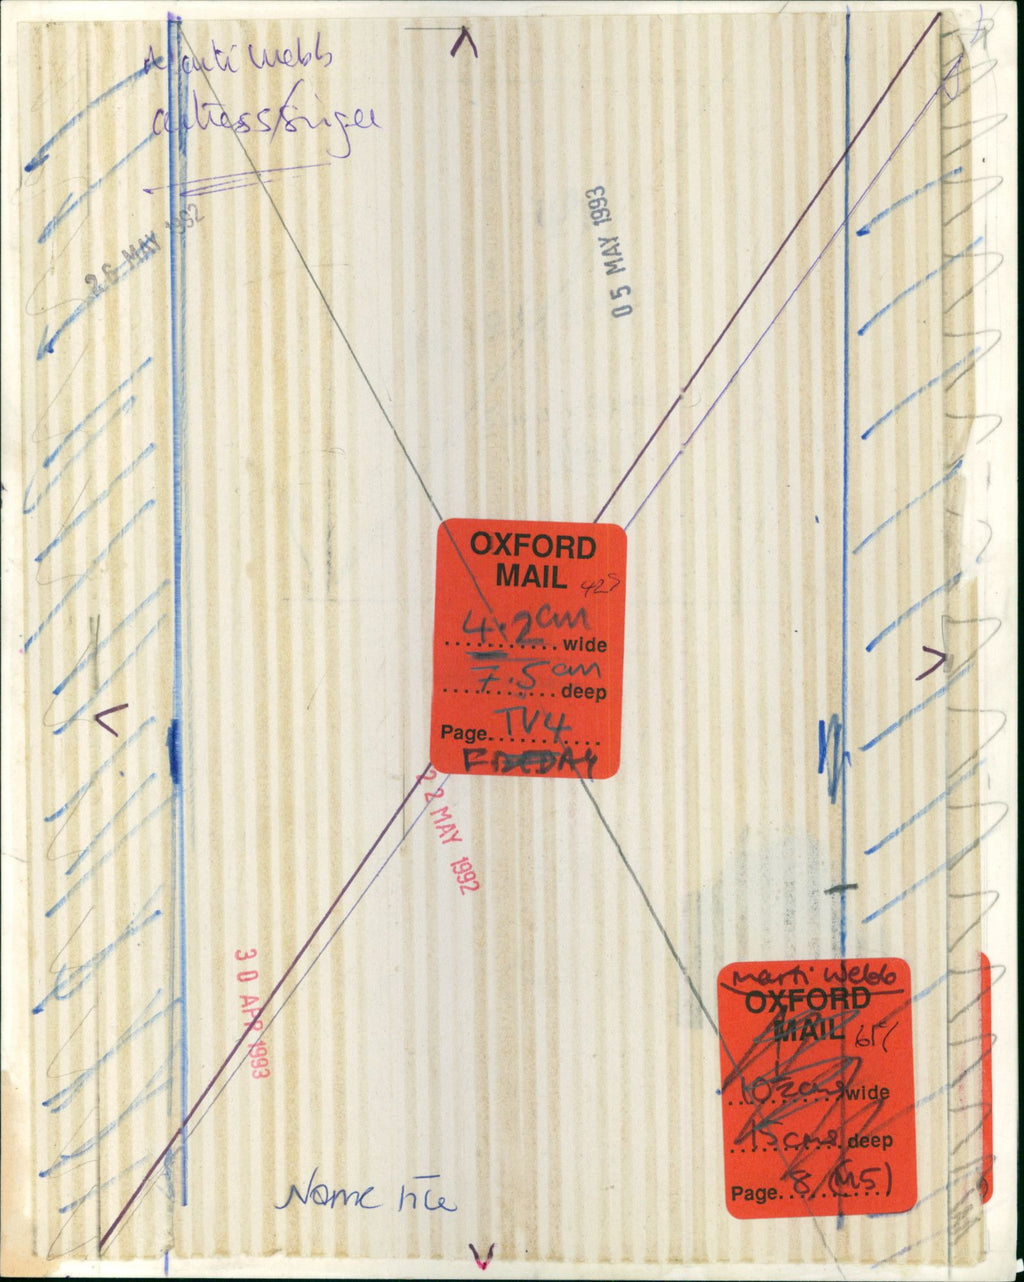 Marti Webb
actress/Singer
26 MAY 1992
05 MAY 1993
OXFORD
MAIL
4.2cm wide
7.5cm deep
Page TV4
FRIDAY
22 MAY 1992
30 APR 1993
Marti Webb
OXFORD
MAIL
wide
15cms deep
Page 8 (M5)